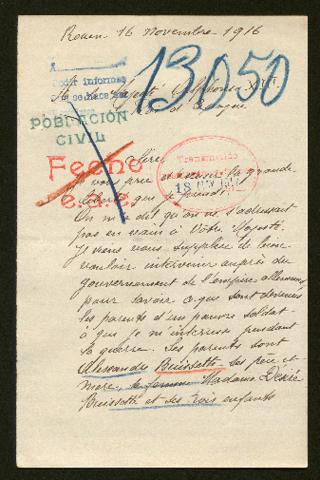 Rouen 16 Novembre 1916
13050
A Sa Majesté Alphonse XIII
Roi d'Espagne
POBLACIÓN
CIVIL
Sire,
Transmitido
18 NOV 1916
Fecho
e.a.e.
Je vous prie et
la grande
liberté que je prends.
On m'a dit qu'on ne s'adressait
pas en vain à Votre Majesté.
Je viens vous supplier de bien
vouloir intervenir auprès du
gouvernement de l'empire allemand
pour savoir ce que sont devenus
les parents d'un pauvre soldat
à qui je m'intéresse pendant
la guerre. Ses parents sont
Alexandre Buissette ses père et
mère, la femme Madame Désiré
Buissette et ses trois enfants